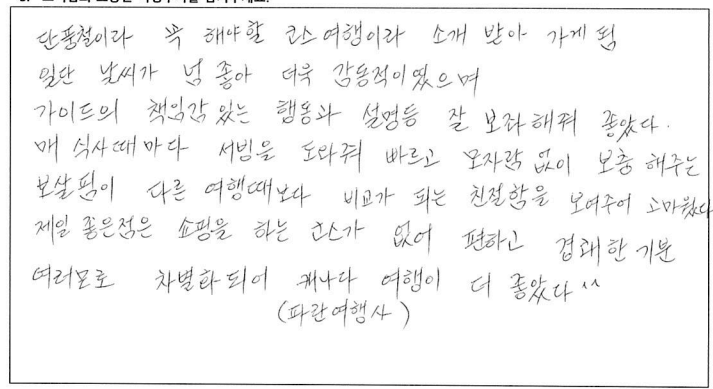 단풍철이라 꼭 해야할 코스여행이라 소개 받아 가게 됨
일단 날씨가 넘 좋아 더욱 감동적이였으며
가이드의 책임감 있는 행동과 설명등 잘 보좌해줘 좋았다.
매 식사때마다 서빙을 도와줘 빠르고 모자람 없이 보충 해주는
보살핌이 다른 여행때보다 비교가 되는 친절함을 보여주어 고마웠다
제일 좋은점은 쇼핑을 하는 코스가 없어 편하고 경쾌한 기분
여러모로 차별화되어 캐나다 여행이 더 좋았다^^
(파란여행사)